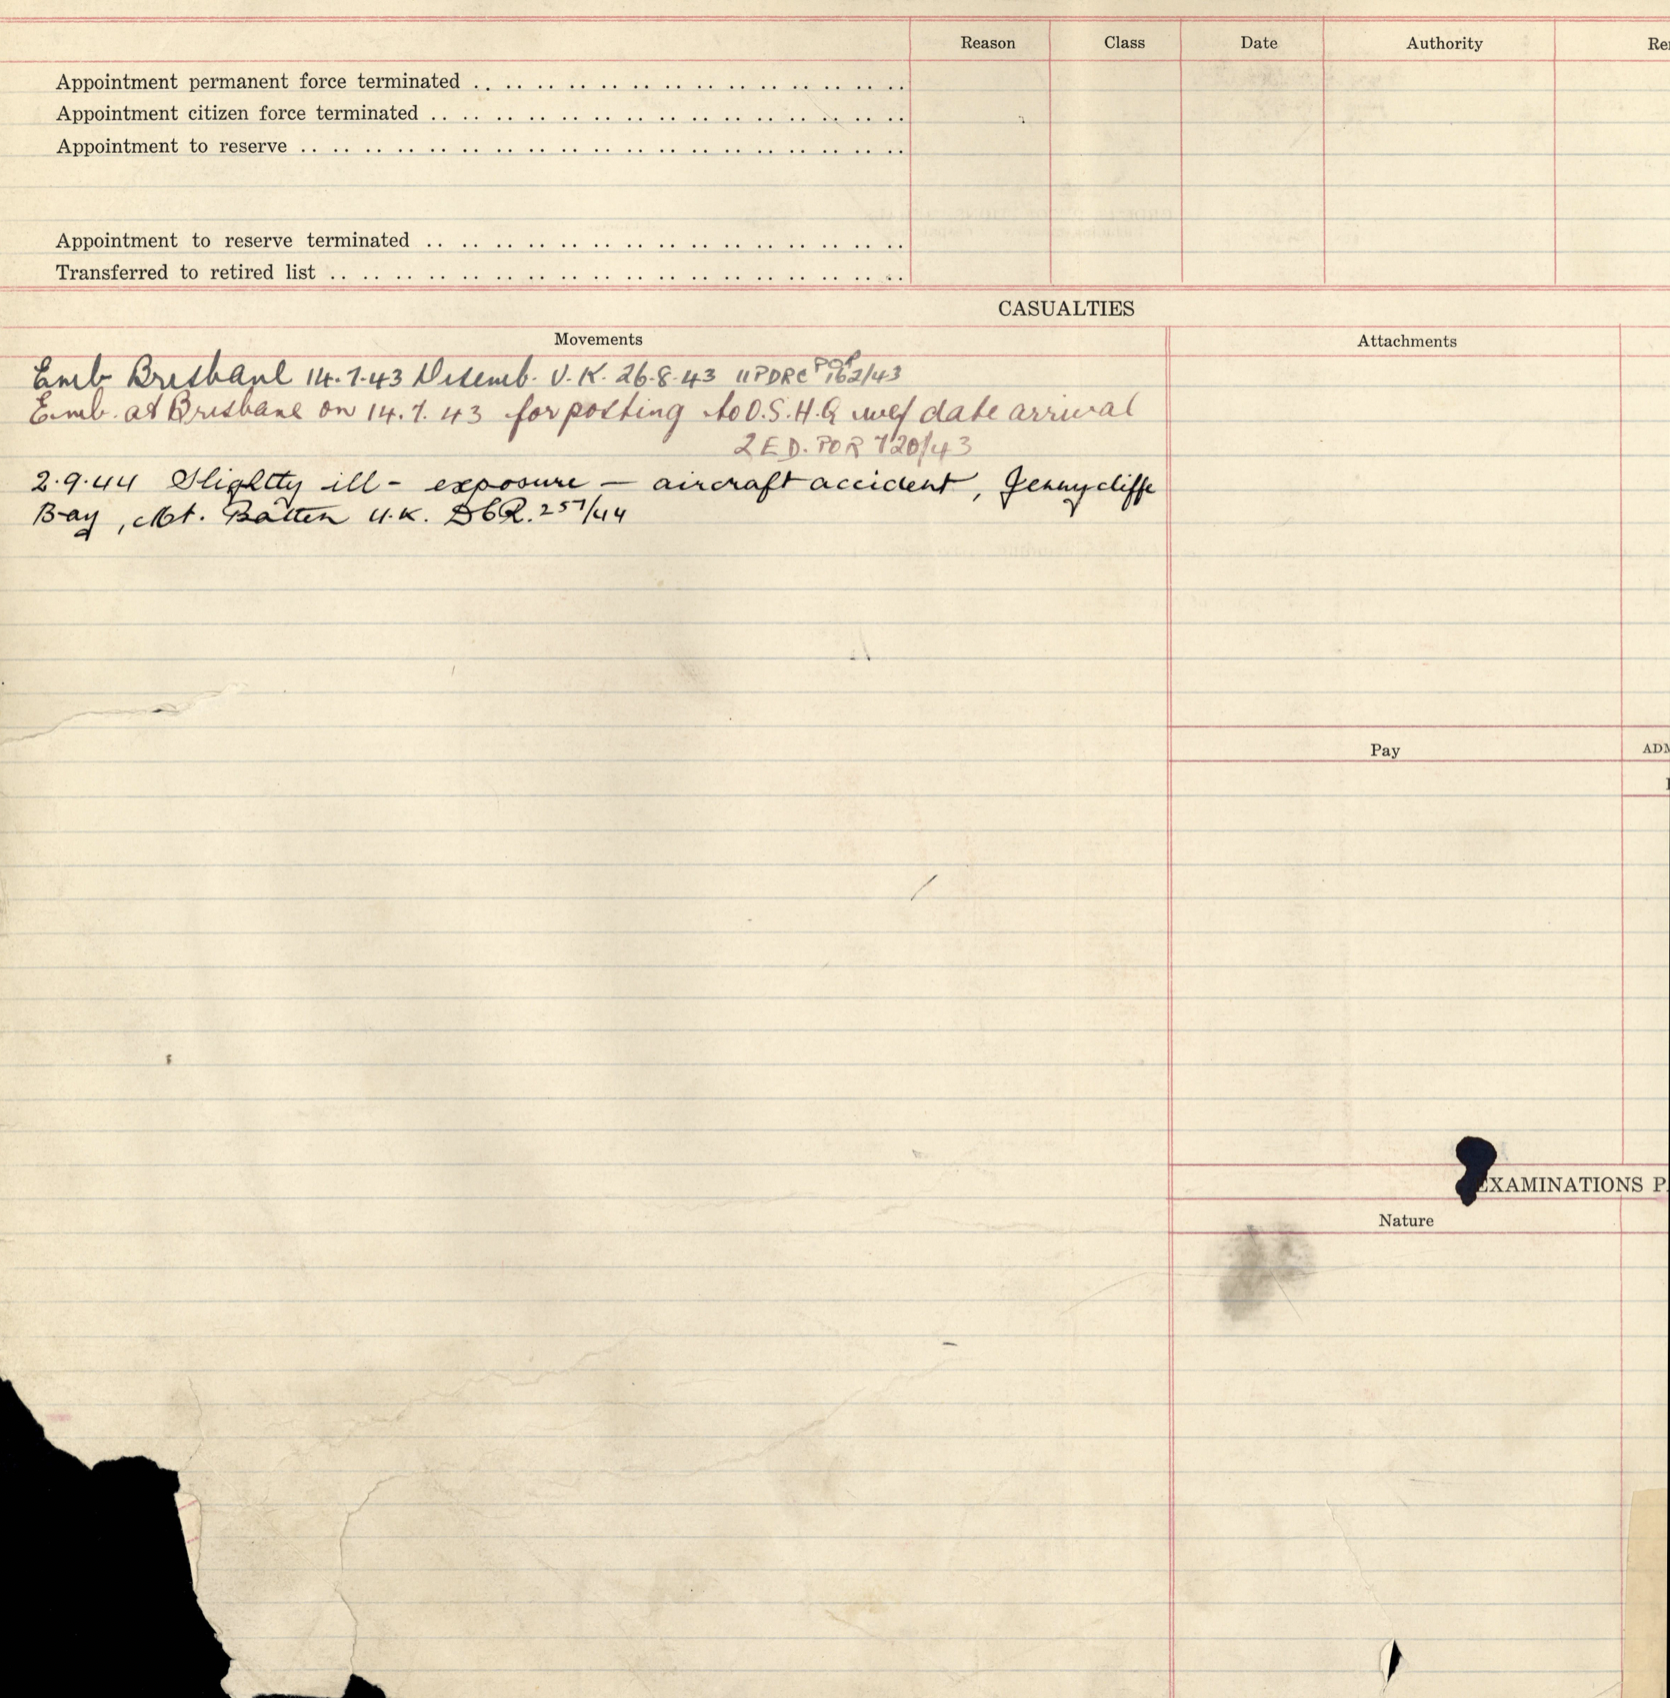 Reason Class Date Authority
Appointment permanent force terminated
Appointment citizen force terminated
Appointment to reserve
Appointment to reserve terminated
Transferred to retired list
CASUALTIES
Movements Attachments
Emb Brisbane 14.7.43 Disemb. U.K. 26.8.43 11PDRC POR 162/43
Emb. at Brisbane on 14.7.43 for posting to O.S.H.Q wef date arrival
2 E D. POR 720/43
2.9.44 Slightly ill - exposure - aircraft accident, Jennycliffe
Bay, Mt. Batten U.K. 257/44
Pay
EXAMINATIONS
Nature